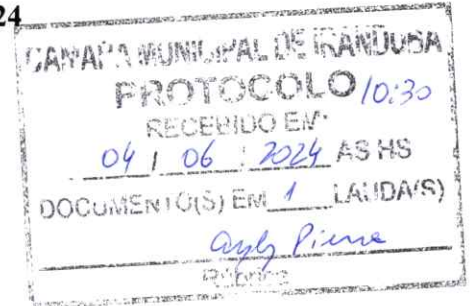 24
CAMARA MUNICIPAL DE IRANDUBA
PROTOCOLO 10:30
RECEBIDO EM:
04 / 06 / 2024 AS HS
DOCUMENTO(S) EM 1 LAUDA(S)
Rubrica